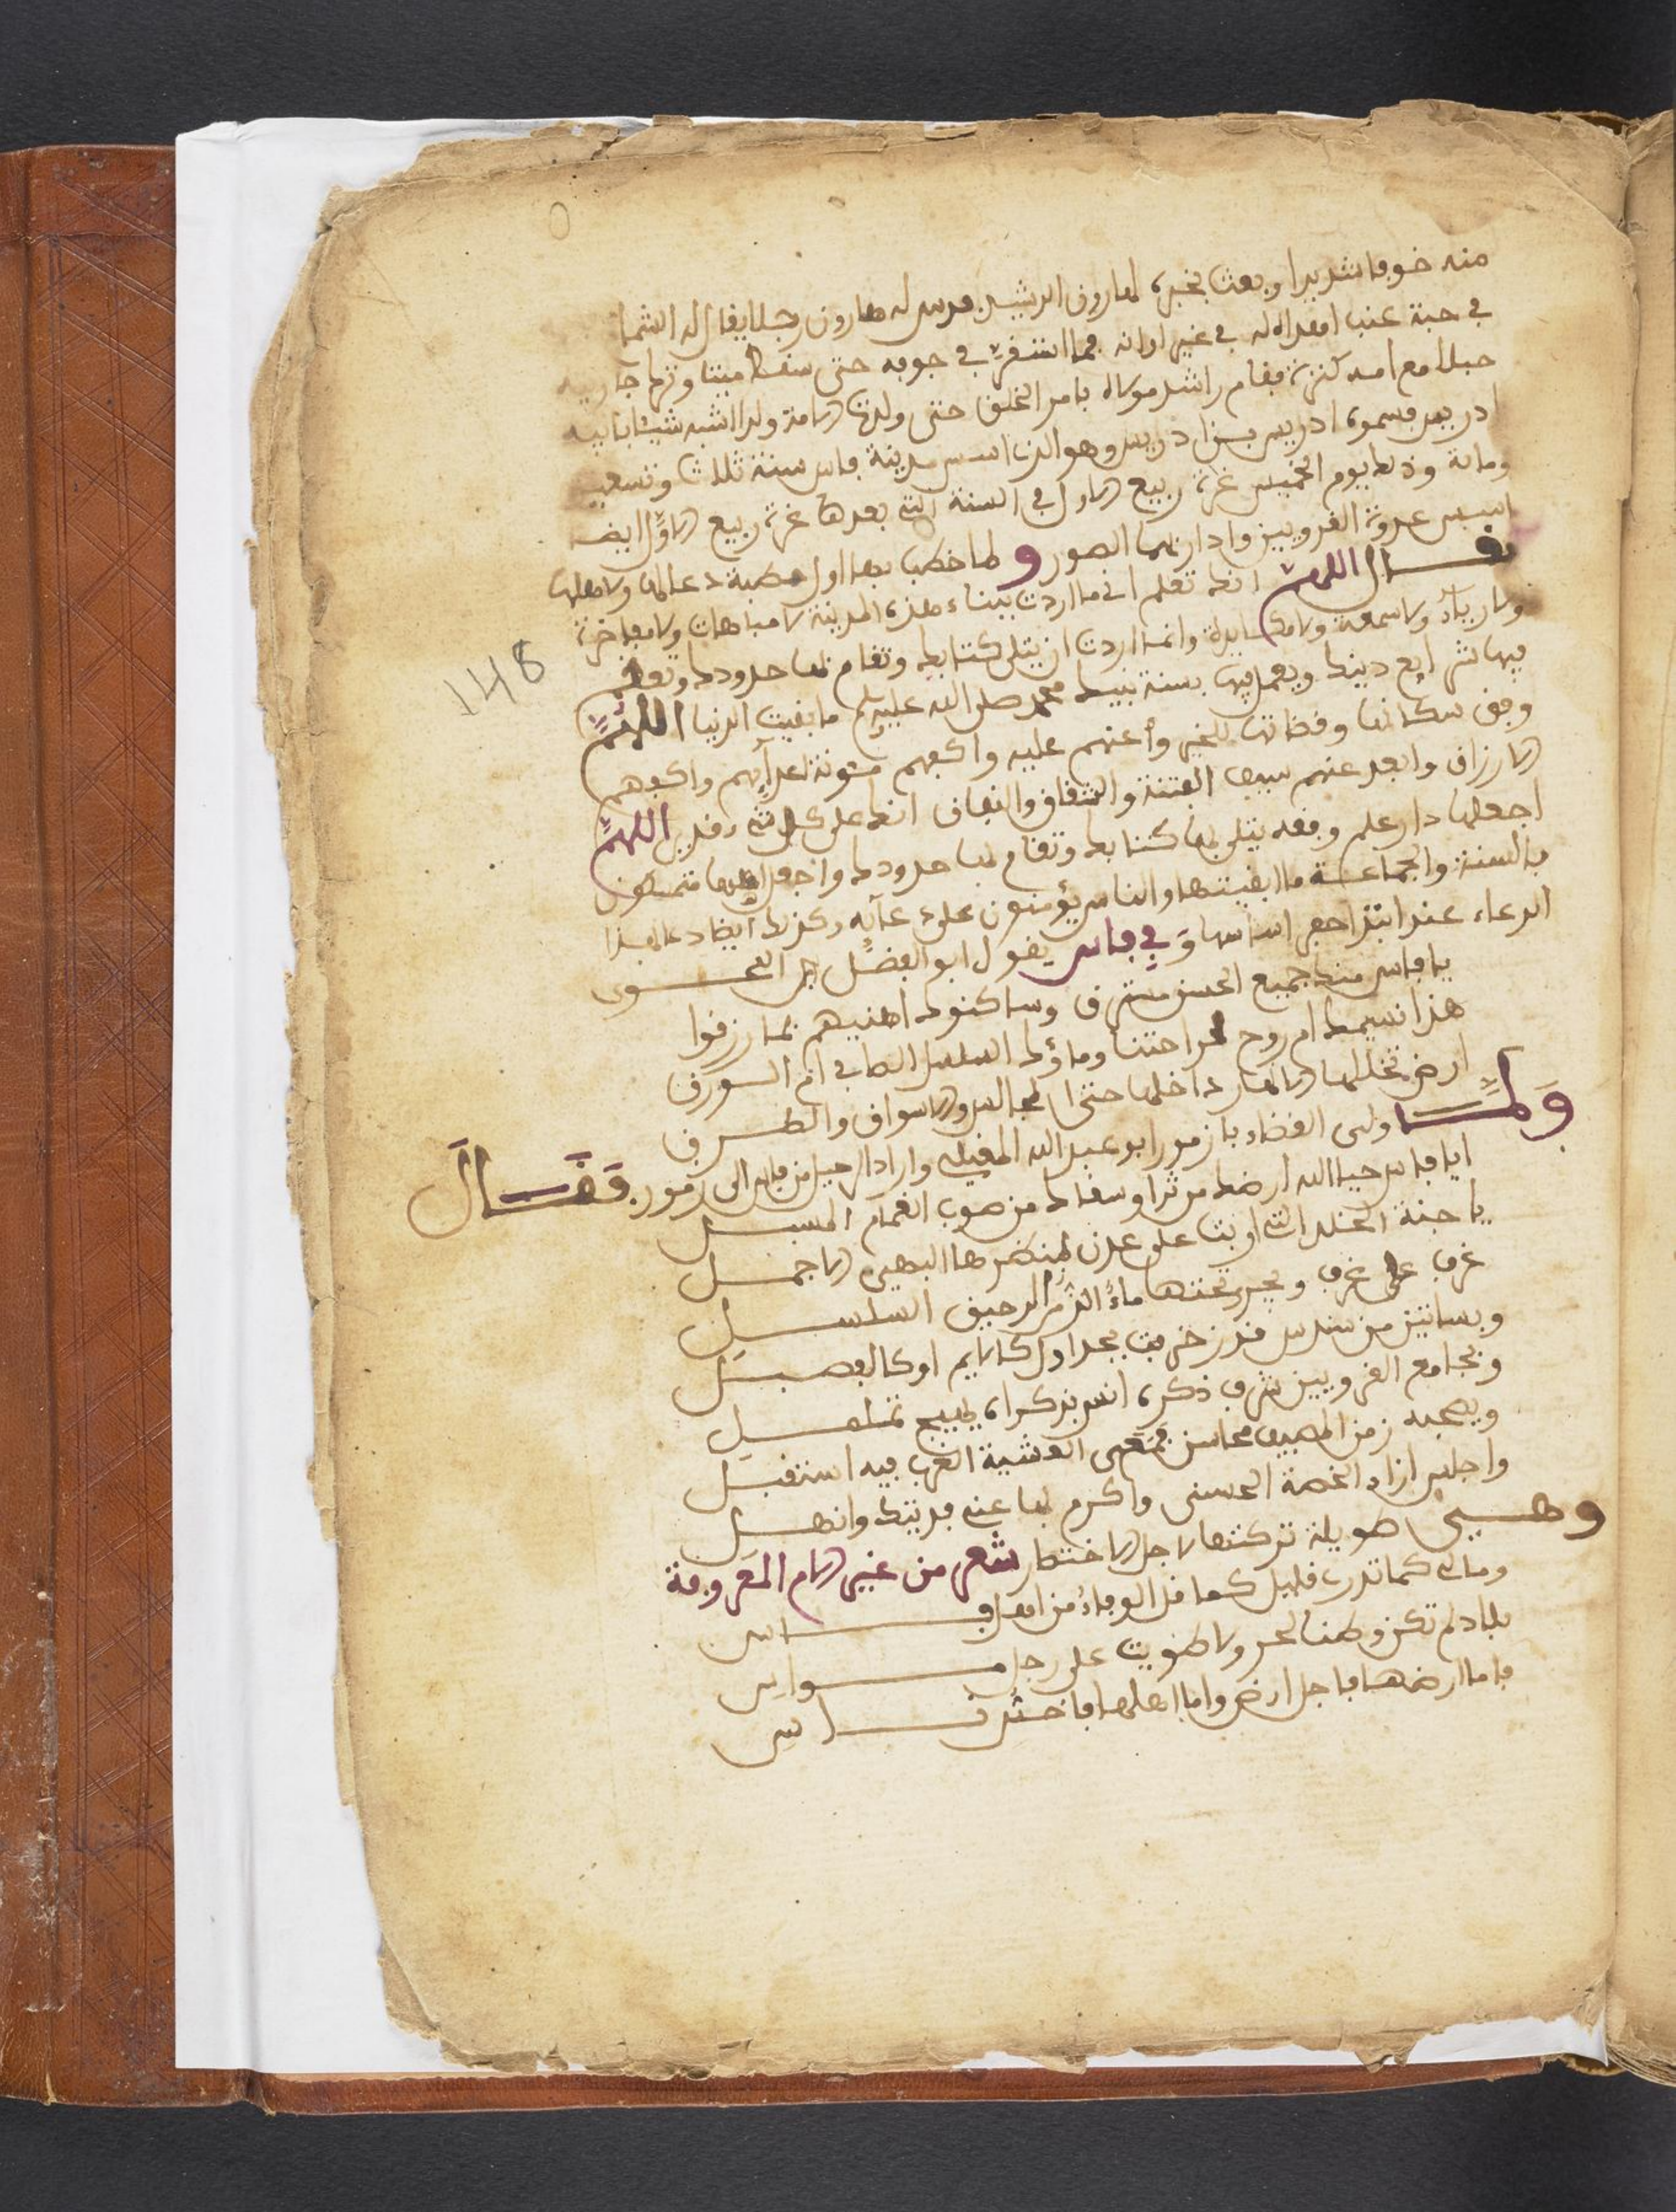 منه خوفا شديدا وبعث بخبره لهارون الرشيد فدس له هارون رجلا يقال له الشماخ
في حبة عنب اهداه له في غير اوانه فما استقرت في جوفه حتى سقط ميتا وترك جاريته
حبلا مع امه كنزة فقام راشد مولاه بامر الخلق حتى ولدت الامة ولدا اشبه شيئا بابيه
ادريس فسموه ادريس بن ادريس وهو الذي اسس مدينة فاس سنة ثلاث وتسعين
ومائة وذلك يوم الخميس غرة ربيع الاول وفي السنة التي بعدها غرة ربيع الاول ايضا
اسس عدوة القرويين وادار بهما الصور ولما خطب بها اول خطبة دعا لها ولاهلها
فقال اللهم انك تعلم اني ما اردت ببناء هذه المدينة لا مباهات ولا مفاخرة
ولا رياء ولا سمعة ولا مكابرة وانما اردت ان يتلى كتابك وتقام بها حدودك وتعلم
فيها شرايع دينك ويعمل فيها بسنة نبيك محمد صلى الله عليه وسلم ما بقيت الدنيا اللهم
وفق سكانها وقطانها للخير وأعنهم عليه واكفهم مئونة اعدآيهم واكفهم
الارزاق وابعد عنهم سيف الفتنة والشقاق والنفاق انك على كل شيء قدير اللهم
اجعلها دار علم وفقه يتلى بها كتابك وتقام بها حدودك واجعل اهلها متمسكين
بالسنة والجماعة ما ابقيتها والناس يؤمنون على دعآيه وكذلك ايضا دعا بهذا
الدعاء عند ابتدا حفر اساسها وفي فاس يقول ابو الفضل بن النحوي
يا فاس منك جميع الحسن مسترق وساكنوك اهنيهم بما رزقوا
هذا نسيمك ام روح لراحتنا وماؤك السلسل الصافي ام الورق
ارض تخللها الانهار داخلها حتى المجالس والاسواق والطرق
ولما ولي القضاء بازمور ابو عبد الله المغيلي واراد الرحيل من فاس الى ازمور فقال
ايا فاس حيا الله ارضك من ثرا وسقاك من صوب الغمام المسبل
يا جنة الخلد التي اربت على عدن بمنظرها البهي الاجمل
غرف على غرف ويجري تحتها ماء الذ من الرحيق السلسل
وبساتين من سندس قد زخرفت بجداول كالايم او كالفيصل
وبجامع القرويين شرف ذكره انس بذكراه يهيج تململ
وبصحنه زمن المصيف محاسن فمع العشية الغرب فيه استقبل
واجلس ازاء الخصة الحسنى واكرع بها عني فديتك وانهل
وهي طويلة تركتها لاجل الاختصار شعر من غير الام المعروفة
ومال كما تدري قليل كما قل الوفاء من اهل فاس
بلاد لم تكن وطنا لحر ولا طويت على رجل مواس
فاما ارضها فاجل ارض واما اهلها فاخس ناس
148